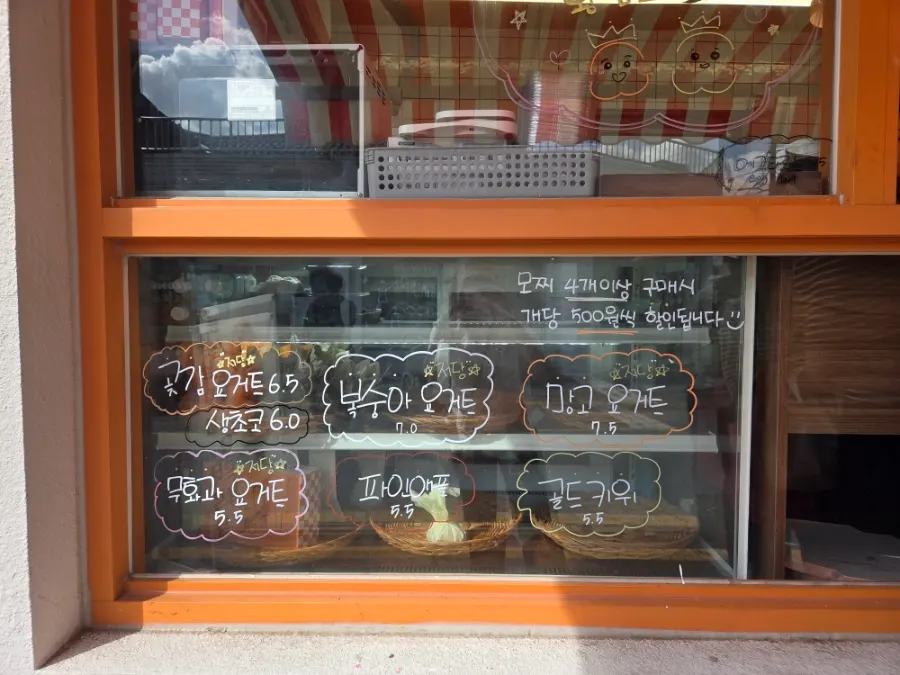 모찌 4개이상 구매시
개당 500원씩 할인됩니다
저당
곶감 요거트 6.5
생초코 6.0
저당
복숭아 요거트
7.0
저당
망고 요거트
7.5
저당
무화과 요거트
5.5
파인애플
5.5
골드키위
5.5